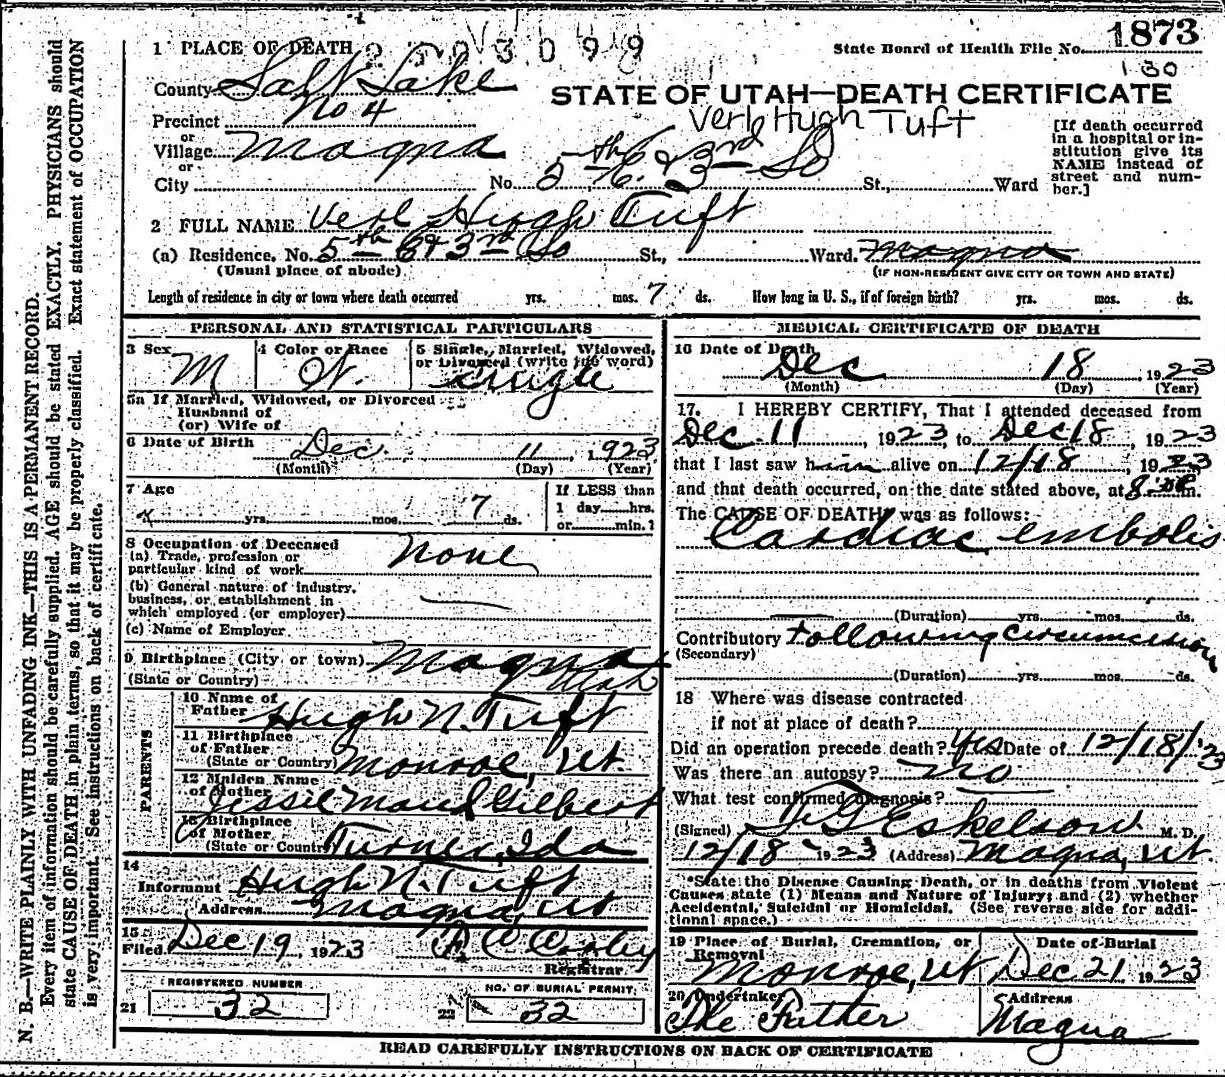 1 PLACE OF DEATH
State Board of Health File No. 1873
130
County Salt Lake
STATE OF UTAH—DEATH CERTIFICATE
Precinct No 4
Verl Hugh Tuft
or
Village Magna
or
City No. 5th & 3rd So St., Ward
[If death occurred
in a hospital or in-
stitution give its
NAME instead of
street and num-
ber.]
2 FULL NAME Verl Hugh Tuft
(a) Residence. No. 5th & 3rd So St., Ward. Magna
(Usual place of abode)
(IF NON-RESIDENT GIVE CITY OR TOWN AND STATE)
Length of residence in city or town where death occurred yrs. mos. 7 ds. How long in U. S., if of foreign birth? yrs. mos. ds.
PERSONAL AND STATISTICAL PARTICULARS
3 Sex M
4 Color or Race W.
5 Single, Married, Widowed,
or Divorced (write the word)
single
5a If Married, Widowed, or Divorced
Husband of
(or) Wife of
6 Date of Birth Dec 11, 1923
(Month) (Day) (Year)
7 Age
yrs. mos. 7 ds.
If LESS than
1 day hrs.
or min.?
8 Occupation of Deceased
(a) Trade, profession or
particular kind of work None
(b) General nature of industry,
business, or establishment in
which employed (or employer)
(c) Name of Employer
9 Birthplace (City or town) Magna
(State or Country) Utah
PARENTS
10 Name of
Father Hugh N. Tuft
11 Birthplace
of Father
(State or Country) Monroe, Ut.
12 Maiden Name
of Mother Jessie Maud Gilbert
13 Birthplace
of Mother
(State or Country) Turner, Ida
14
Informant Hugh N. Tuft
Address Magna, Ut
15
Filed Dec 19, 1923
Registrar
REGISTERED NUMBER
21 32
NO. OF BURIAL PERMIT
22 32
MEDICAL CERTIFICATE OF DEATH
16 Date of Death
Dec 18, 1923
(Month) (Day) (Year)
17. I HEREBY CERTIFY, That I attended deceased from
Dec 11, 1923, to Dec 18, 1923
that I last saw him alive on 12/18, 1923
and that death occurred, on the date stated above, at 8 m.
The CAUSE OF DEATH* was as follows:
Cardiac embolis
(Duration) yrs. mos. ds.
Contributory following circumcision
(Secondary)
(Duration) yrs. mos. ds.
18 Where was disease contracted
if not at place of death?
Did an operation precede death? Yes Date of 12/18/'23
Was there an autopsy? no
What test confirmed diagnosis?
(Signed) Eskelson M. D.
12/18 1923 (Address) Magna, Ut.
*State the Disease Causing Death, or in deaths from Violent
Causes state (1) Means and Nature of Injury; and (2) whether
Accidental, Suicidal or Homicidal. (See reverse side for addi-
tional space.)
19 Place of Burial, Cremation, or
Removal
Monroe, Ut
Date of Burial
Dec. 21 1923
20 Undertaker
The Father
Address
Magna
READ CAREFULLY INSTRUCTIONS ON BACK OF CERTIFICATE
N. B.—WRITE PLAINLY WITH UNFADING INK—THIS IS A PERMANENT RECORD.
Every item of information should be carefully supplied. AGE should be stated EXACTLY. PHYSICIANS should
state CAUSE OF DEATH in plain terms, so that it may be properly classified. Exact statement of OCCUPATION
is very important. See instructions on back of certificate.